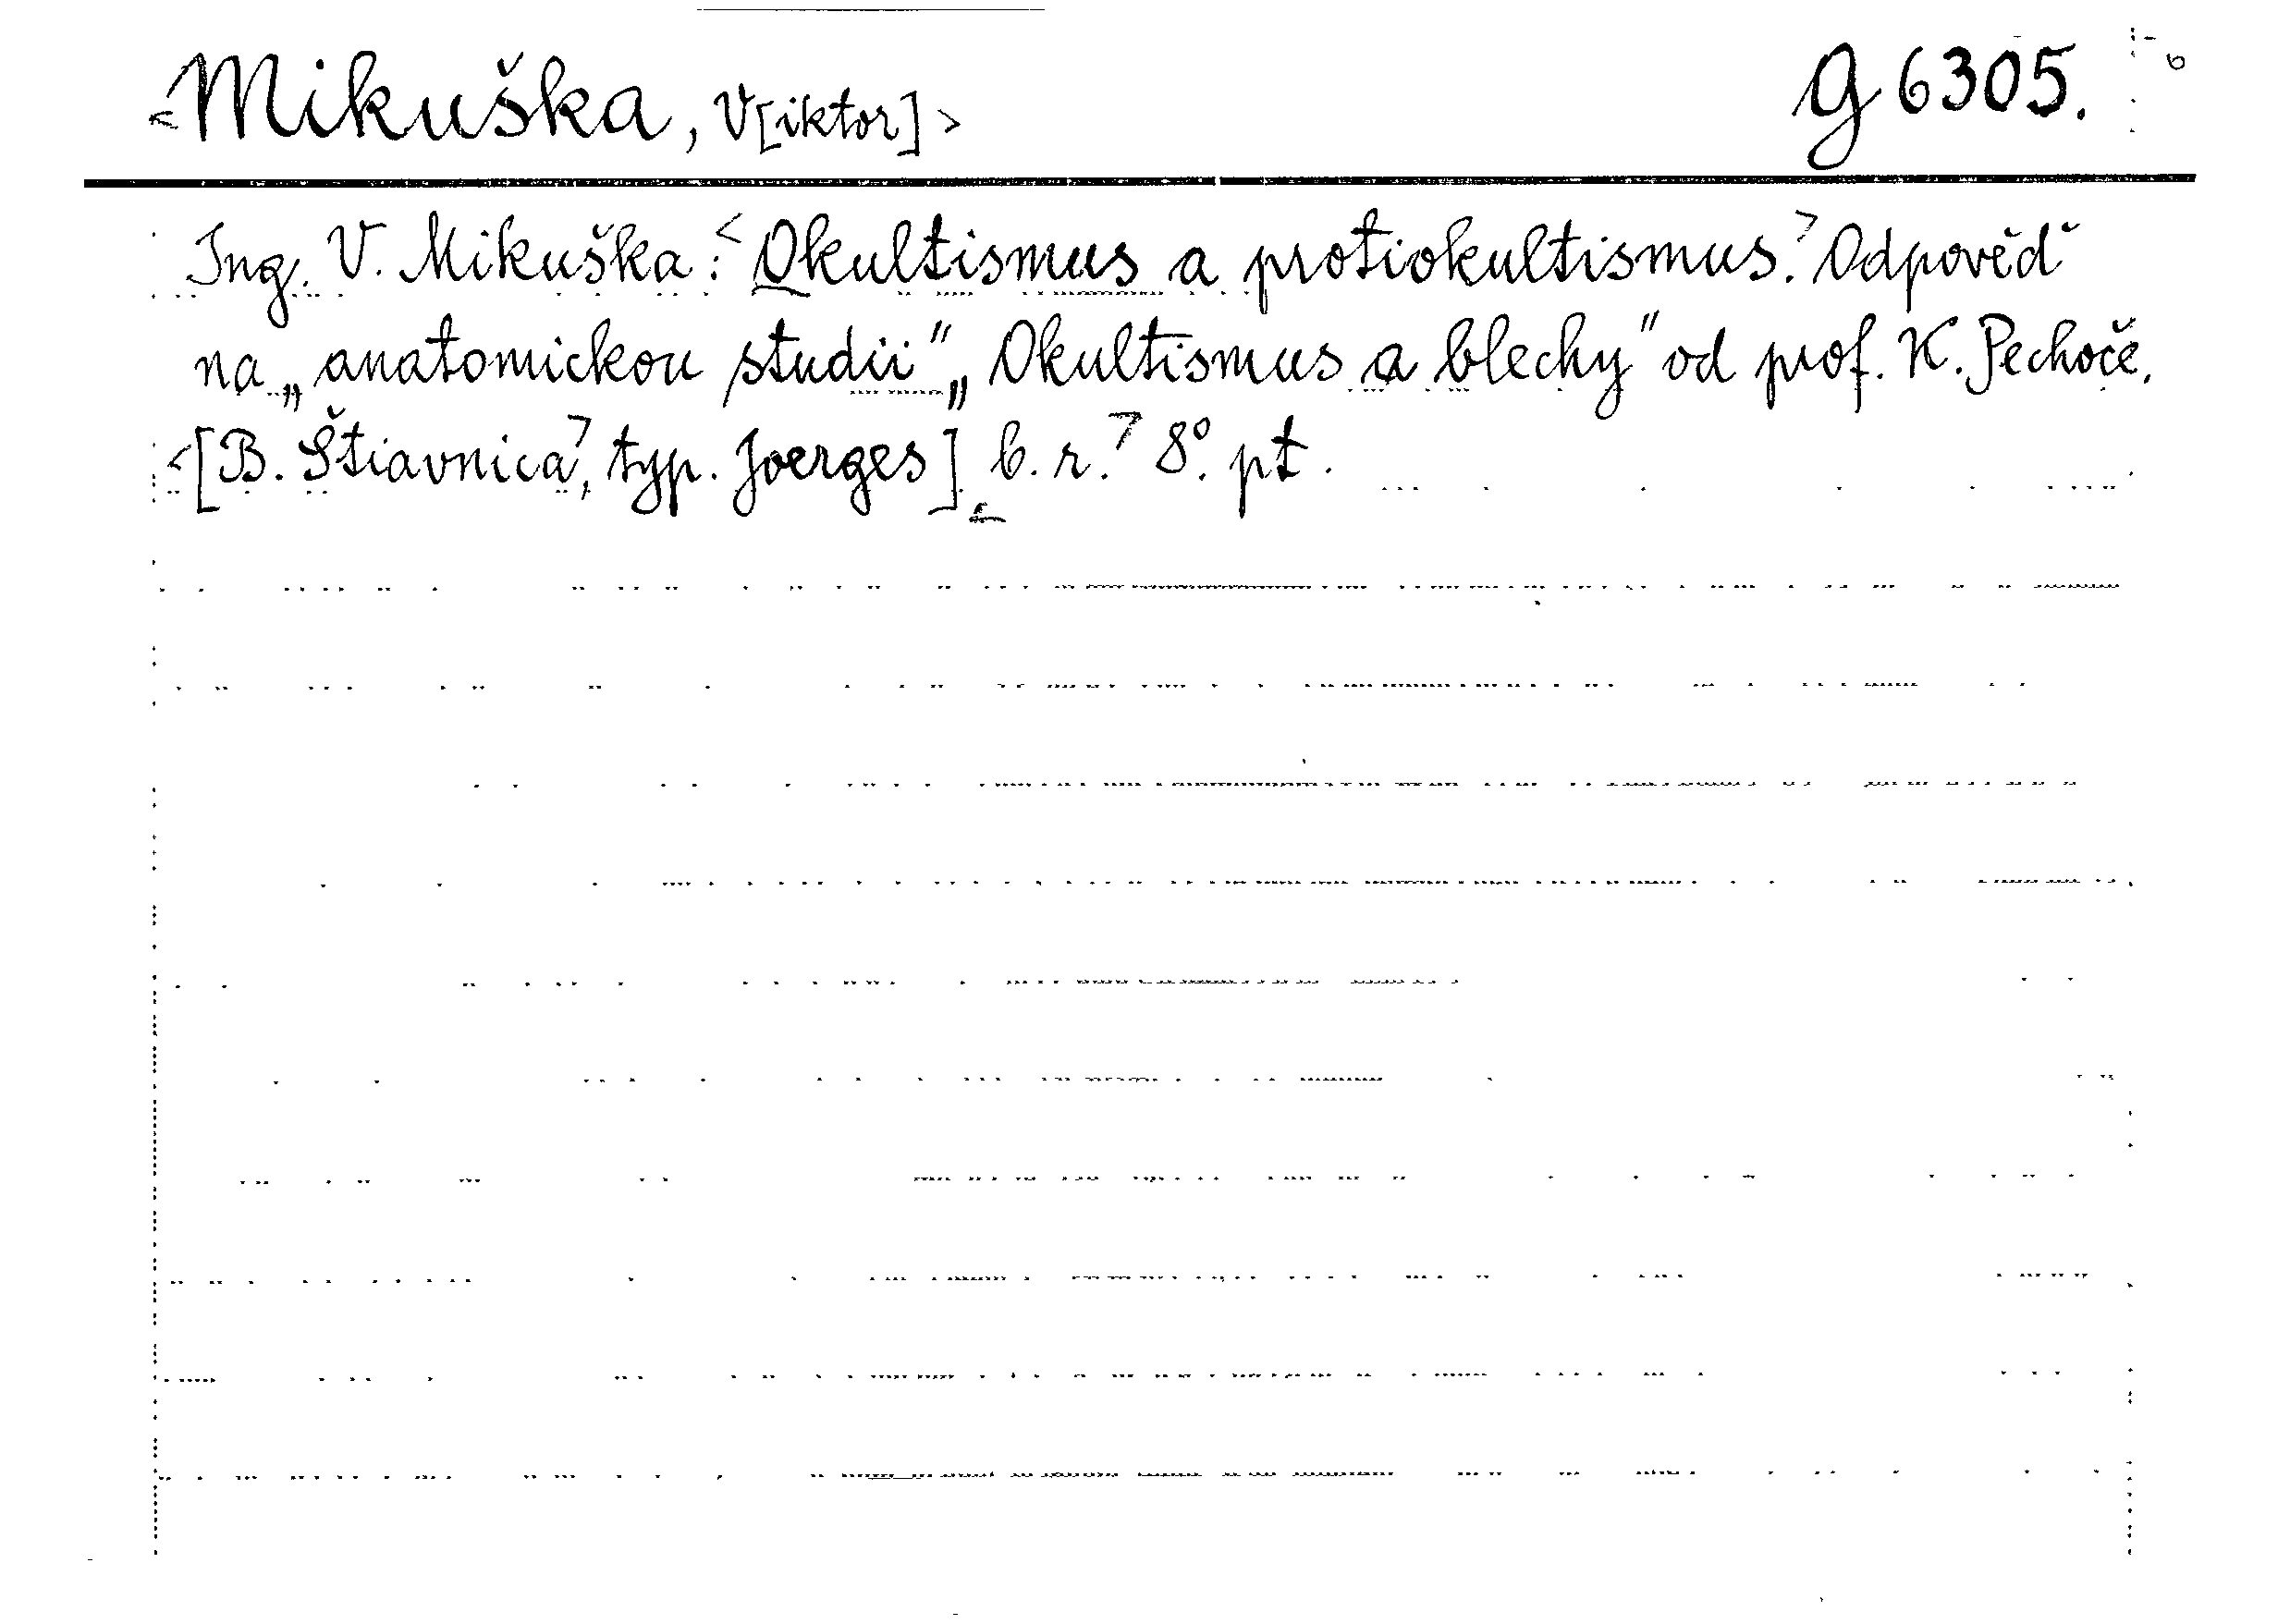 <Mikuška, V[iktor]> g 6305.
Ing. V. Mikuška: <Okultismus a protiokultismus.> Odpověď
na „anatomickou studii" „Okultismus a blechy" od prof. K. Pechoče.
<[B. Štiavnica>, typ. Joerges] <b. r.> 8°. pt.